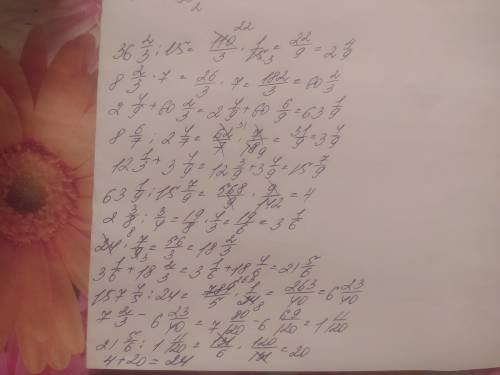 2
36 2/3 : 15 = 110/3 · 1/15 = 22/9 = 2 4/9
8 2/3 · 7 = 26/3 · 7 = 182/3 = 60 2/3
2 4/9 + 60 2/3 = 2 4/9 + 60 6/9 = 63 1/9
8 6/7 : 2 4/7 = 62/7 · 7/18 = 31/9 = 3 4/9
12 1/3 + 3 4/9 = 12 3/9 + 3 4/9 = 15 7/9
63 1/9 : 15 7/9 = 568/9 · 9/142 = 4
2 3/8 : 3/4 = 19/8 · 4/3 = 19/6 = 3 1/6
24 · 7/9 = 56/3 = 18 2/3
3 1/6 + 18 2/3 = 3 1/6 + 18 4/6 = 21 5/6
157 4/5 : 24 = 789/5 · 1/24 = 263/40 = 6 23/40
7 2/3 - 6 23/40 = 7 80/120 - 6 69/120 = 1 11/120
21 5/6 : 1 11/120 = 131/6 · 120/131 = 20
4 + 20 = 24